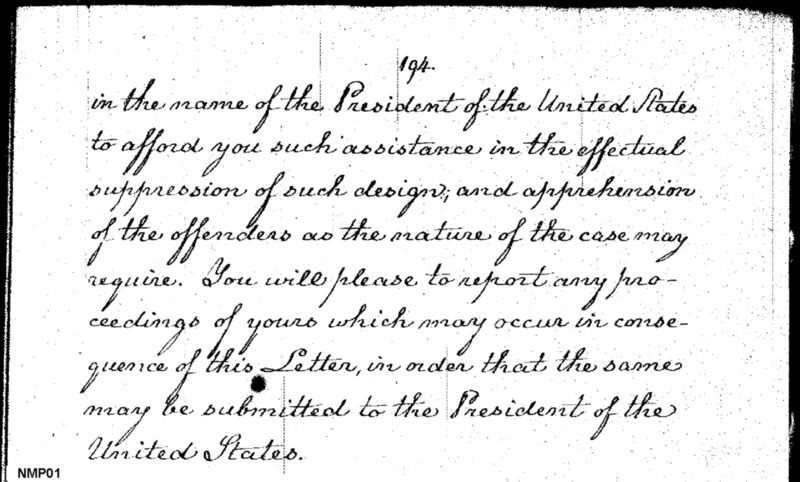 194.
in the name of the President of the United States
to afford you such assistance in the effectual
suppression of such design; and apprehension
of the offenders as the nature of the case may
require. You will please to report any pro-
ceedings of yours which may occur in conse-
quence of this Letter, in order that the same
may be submitted to the President of the
United States.
NMP01